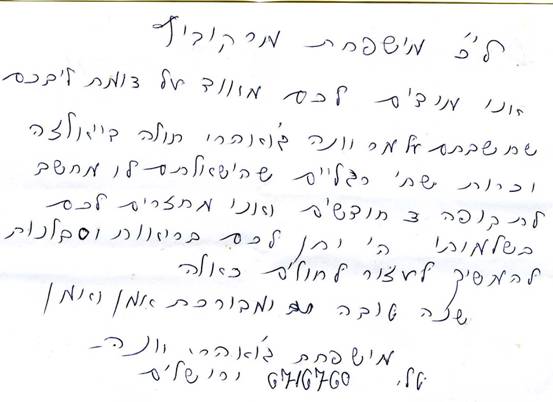 לכ' מישפחת מרקוביץ
אנו מודים לכם מאוד על דומת ליבכם
שחשבתם על מר יונה ג'ואהרי חולה בייאולזה
וכרות שתי רגליים שהישאלתם לו מחשב
לתקופה 3 חודשים ואנו מחזרים לכם
בשלמותו ה' יתן לכם בריאות וסבלנות
להמשיך לעזור לחולים כאלה
שנה טובה ומבורכת אמן ואמן
מישפחת ג'ואהרי יונה-
טל. 6716760 ירושלים